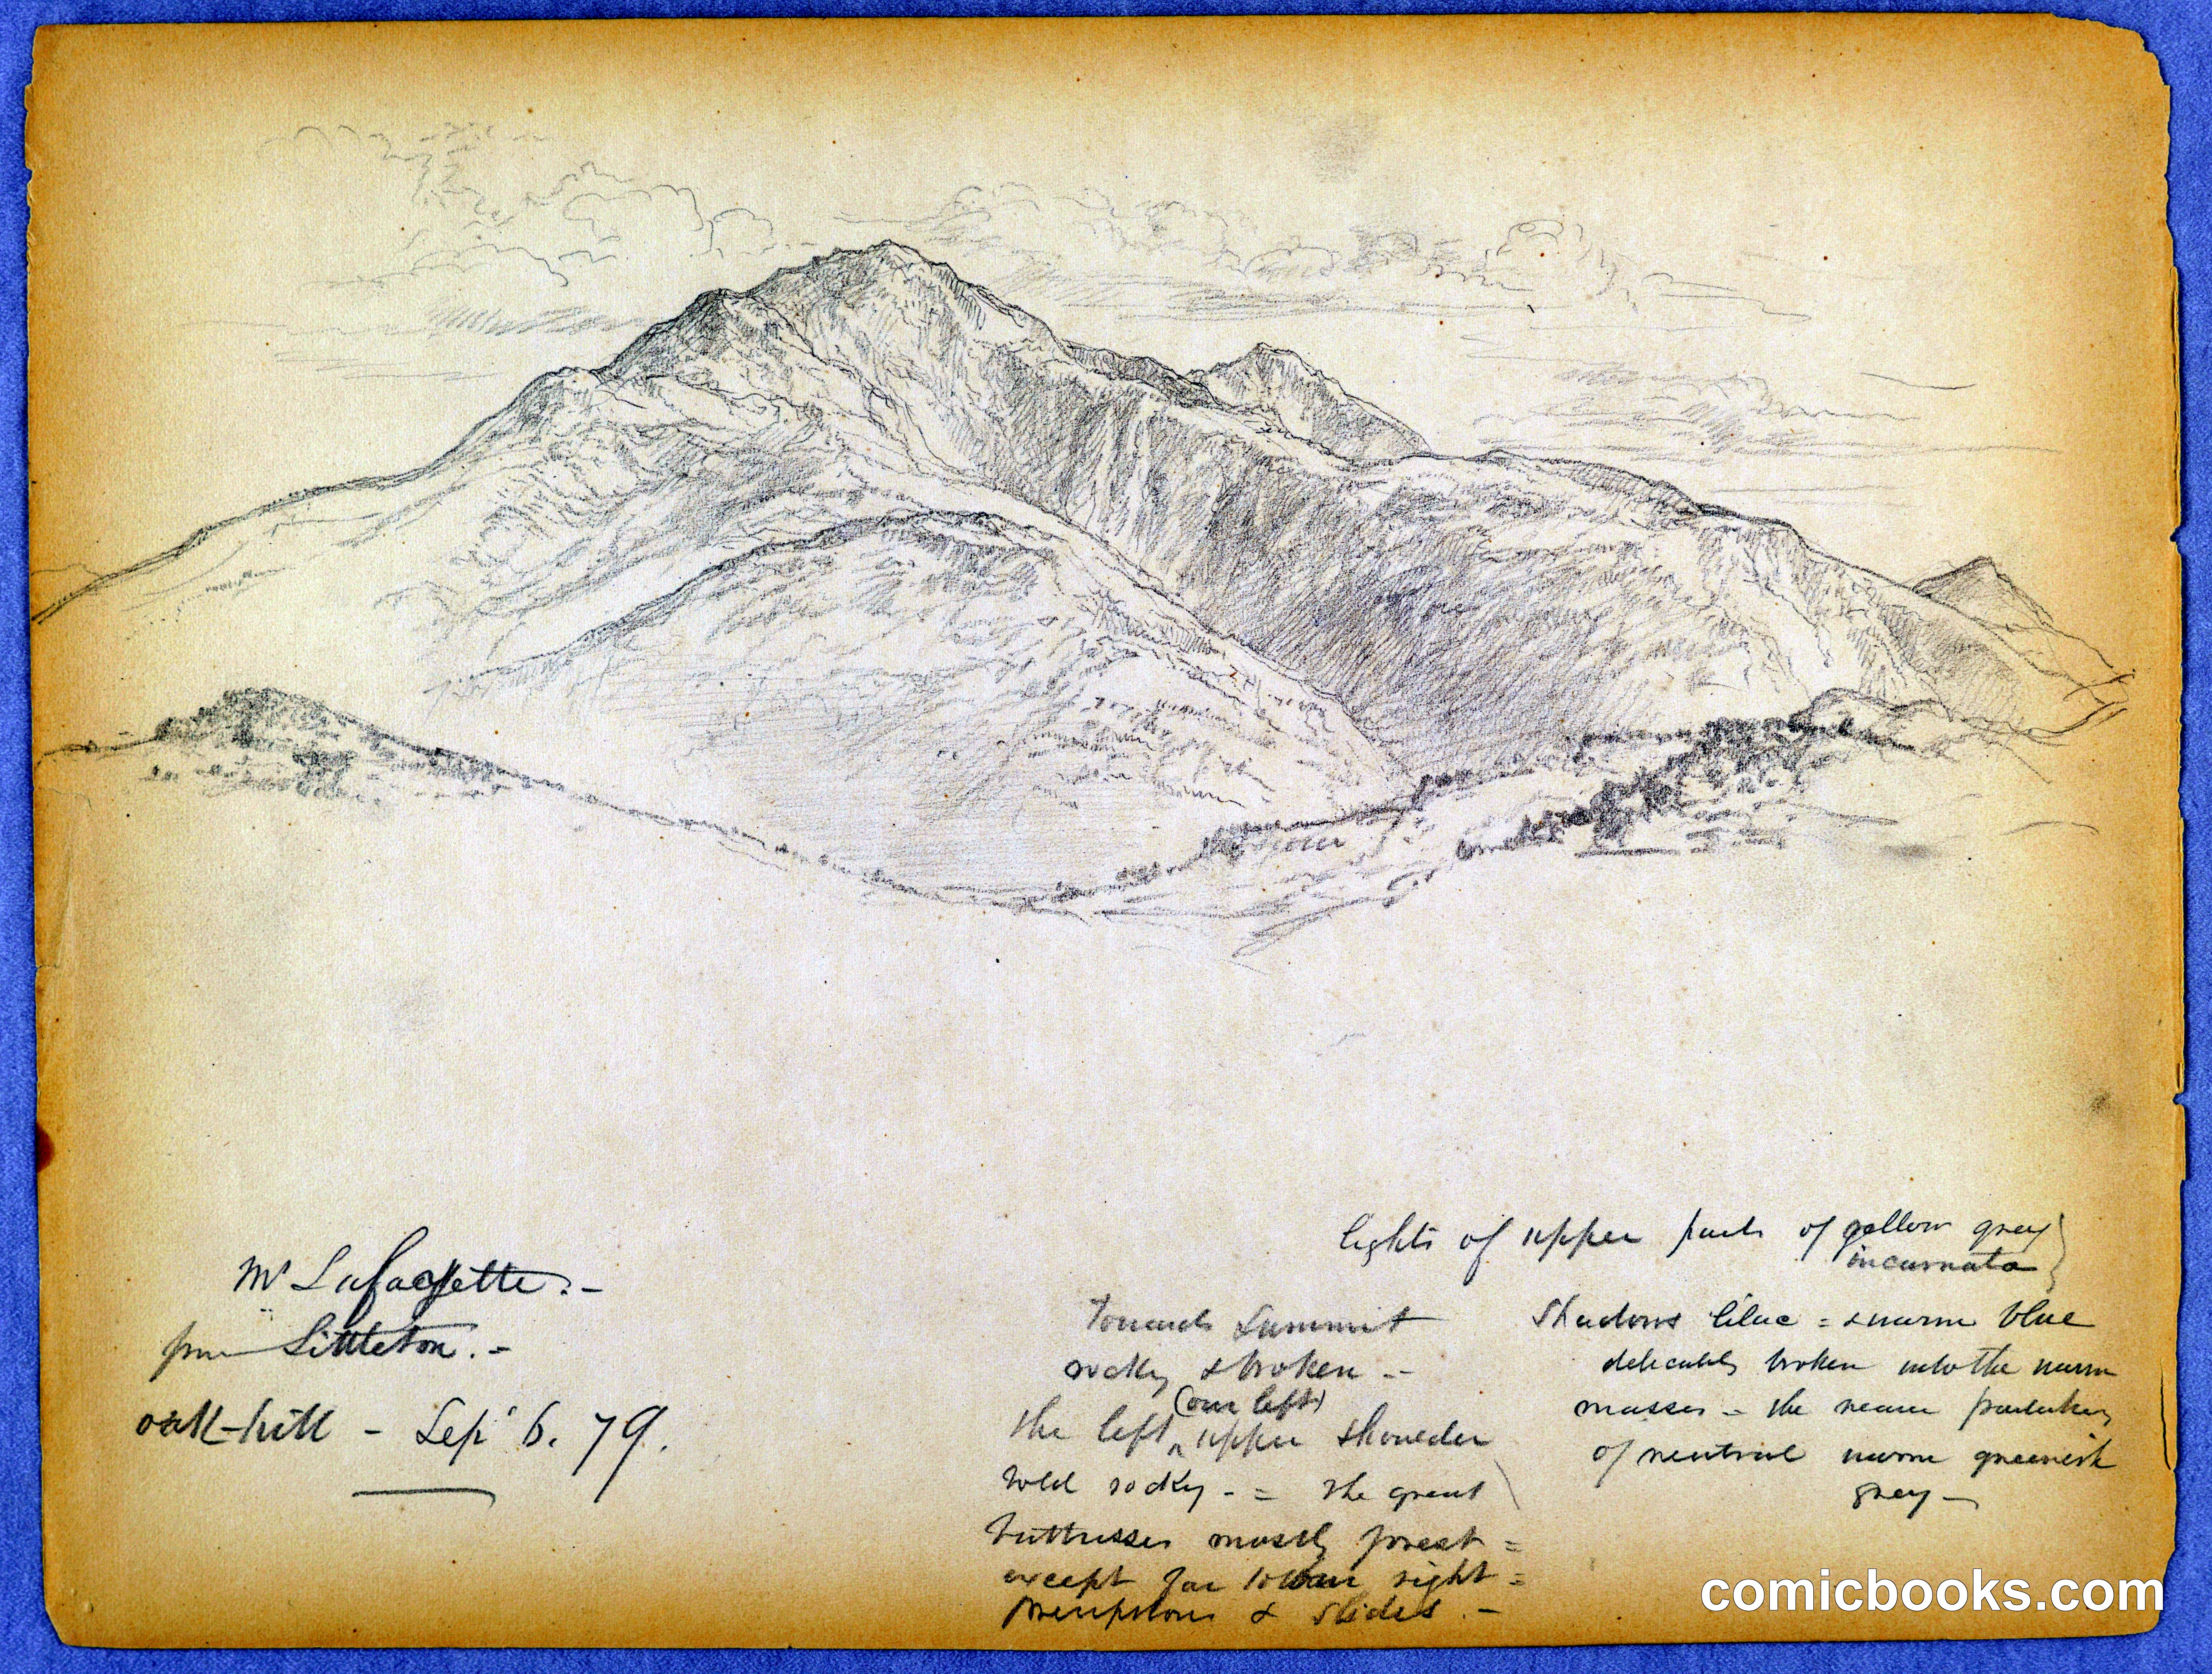 Mt Lafayette. -
from Littleton. -
oak-hill - Sep 6. 79.
lights of upper parts of yellow grey
incarnata
Shadows lilac = & warm blue
delicately broken into the warm
masses - the nearer partaking
of neutral warm greenish
grey -
Towards Summit
rocky & broken -
(our left)
the left ^ upper shoulder
bold rocky - = the great
buttresses mostly forest =
except far lower right =
& slides. -
comicbooks.com